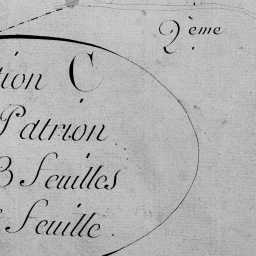 2ème
tion C
Patrion
3 feuilles
feuille